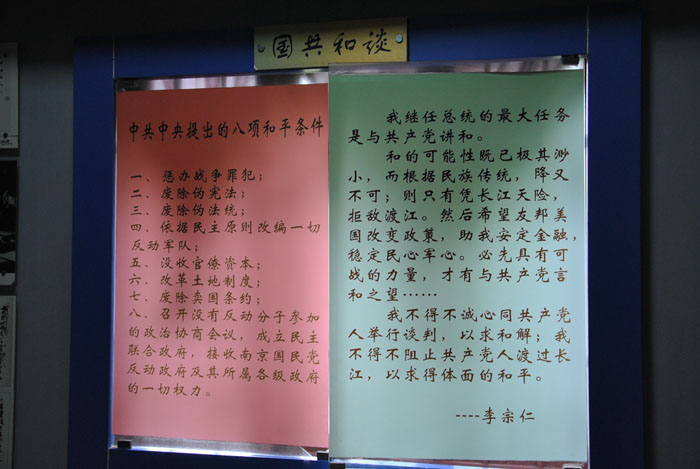 国共和谈
中共中央提出的八项和平条件
一、惩办战争罪犯；
二、废除伪宪法；
三、废除伪法统；
四、依据民主原则改编一切
反动军队；
五、没收官僚资本；
六、改革土地制度；
七、废除卖国条约；
八、召开没有反动分子参加
的政治协商会议，成立民主
联合政府，接收南京国民党
反动政府及其所属各级政府
的一切权力。
我继任总统的最大任务
是与共产党讲和。
和的可能性既已极其渺
小，而根据民族传统，降又
不可；则只有凭长江天险，
拒敌渡江。然后希望友邦美
国改变政策，助我安定金融，
稳定民心军心。必先具有可
战的力量，才有与共产党言
和之望……
我不得不诚心同共产党
人举行谈判，以求和解；我
不得不阻止共产党人渡过长
江，以求得体面的和平。
----李宗仁